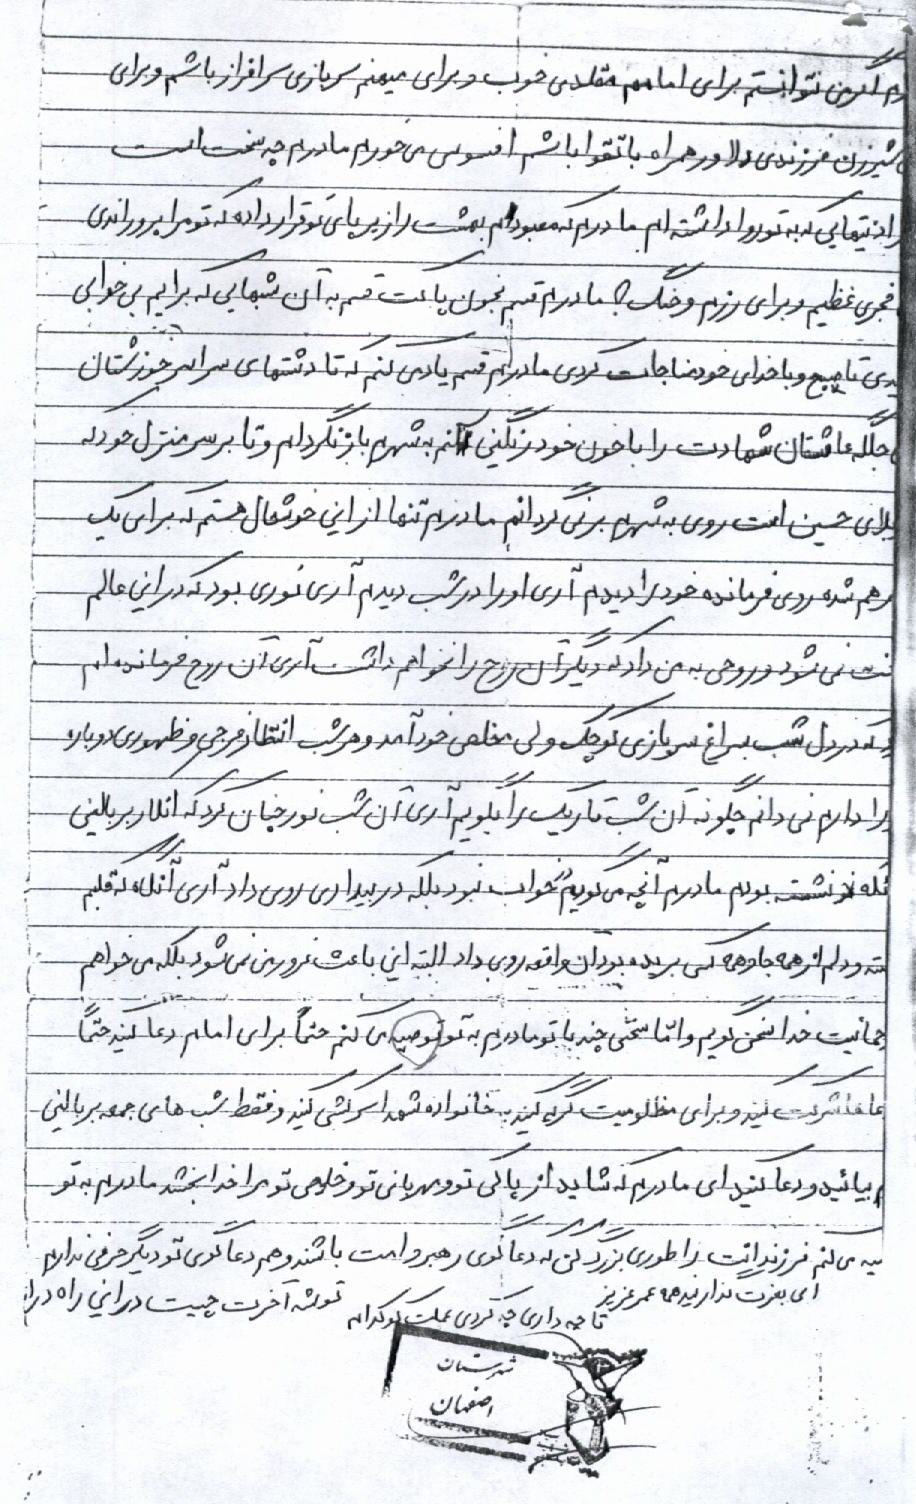 اگر من نتوانستم برای امامم مقلدی خوب و برای میهنم سربازی سرافراز باشم و برای
شیرزن فرزندی دلاور همراه با تقوا باشم افسوس می خورم مادرم چه سخت است
اذیتهایی که به تو روا داشته ام مادرم که معبودم بهشت را زیر پای تو قرار داده که تو مرا پروراندی
فجری عظیم و برای رزم و جنگ مادرم قسم بخون پاکت قسم به آن شبهایی که برایم بی خوابی
تا صبح و با خدای خود مناجات کردی مادرم قسم یاد می کنم که تا دشتهای سراسر خوزستان
جلگه عاشقان شهادت را با خون خود رنگین نکنم به شهرم باز نگردم و تا بر سر منزل خود که
حسین است روی به شهرم بر نمی گردانم مادرم تنها از این خوشحال هستم که برای یک
هم شده روی فرمانده خود را دیدم آری او را در شب دیدم آری نوری بود که در این عالم
نمی شود و روحی به من داد که دیگر آن روح را نخواهم داشت آری آن روح فرمانده ام
که در دل شب بسراغ سربازی کوچک ولی مخلص خود آمد و هر شب انتظار فرجی و ظهوری دوباره
را دارم نمی دانم چگونه آن شب تاریک را بگویم آری آن شب نور چنان کرد که انگار بر بالینی
نشسته بودم مادرم آنچه می گویم خواب نبود بلکه در بیداری روی داد آری آنگاه که قلبم
و دلم از همه جا و همه کس بریده بود آن واقعه روی داد البته این باعث غرور من نمی شود بلکه می خواهم
خدا سخن گویم و اما سخنی چند با تو مادرم به تو توصیه می کنم حتماً برای امام دعا کنید حتماً
شرکت کنید و برای مظلومیت گریه کنید به خانواده شهدا سرکشی کنید و فقط شب های جمعه بر بالینی
بیائید و دعا کنید ای مادرم که شاید از پاکی تو و مهربانی تو و خلوص تو مرا خدا ببخشد مادرم به تو
می کنم فرزندانت را طوری بزرگ کن که دعاگوی رهبر و امت باشند و هم دعاگوی تو دیگر حرفی ندارم
ای همه عمر عزیز تا چه داری چه کردی عملت کو کدام توشه آخرت چیست در این راه دراز
شهرستان
اصفهان